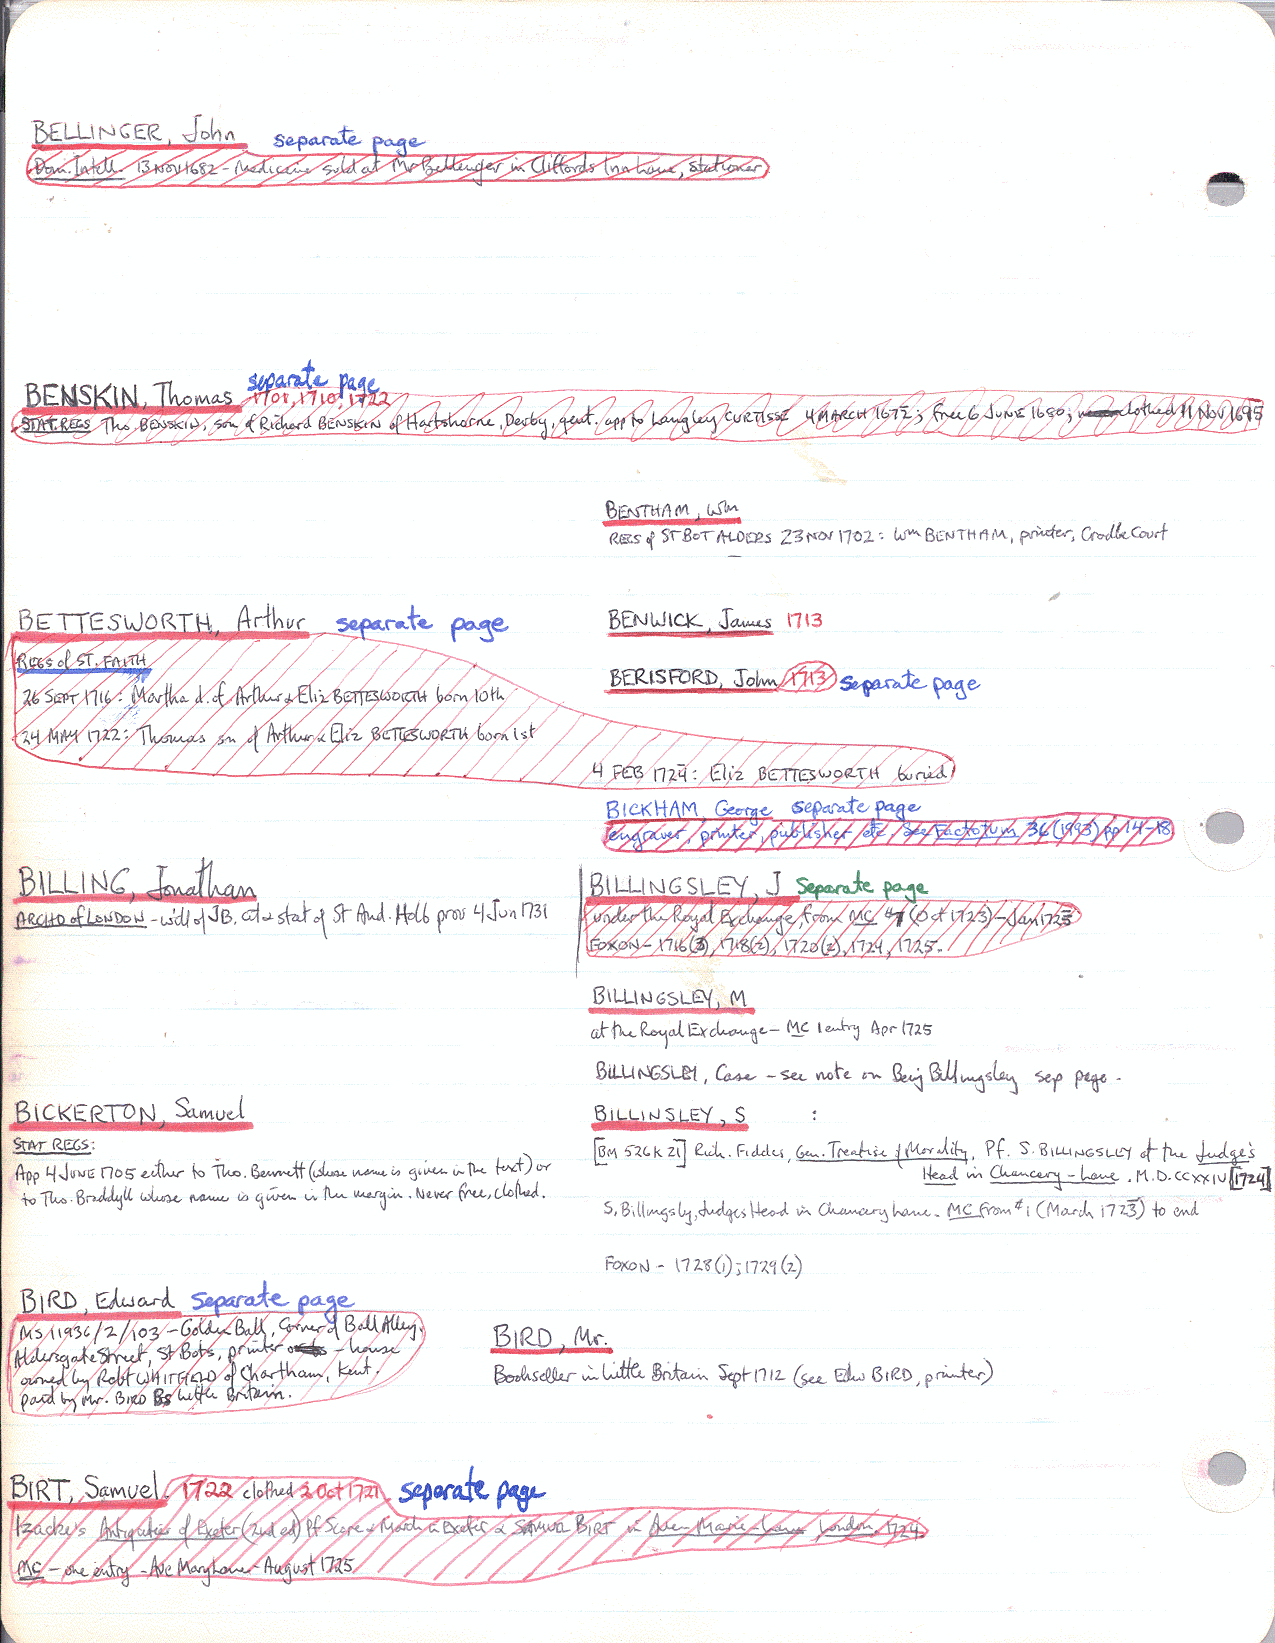 BELLINGER, John separate page
Dom. Intell. 13 NOV 1682 - Medicine sold at Mr Bellenger in Cliffords Inn Lane, Stationer
BENSKIN, Thomas separate page
1701, 1710, 1722
STAT REGS Tho. BENSKIN, son of Richard BENSKIN of Hartshorne, Derby, gent. app to Langley CURTISSE 4 MARCH 1672; free 6 JUNE 1680; clothed 11 NOV 1695
BENTHAM, Wm
REGS of ST BOT ALDERS 23 NOV 1702: Wm BENTHAM, printer, Cradle Court
BETTESWORTH, Arthur separate page
REGS of ST. FAITH
26 SEPT 1716: Martha d. of Arthur & Eliz BETTESWORTH born 10th
24 MAY 1722: Thomas son of Arthur & Eliz BETTESWORTH born 1st
4 FEB 1724: Eliz BETTESWORTH buried
BENWICK, James 1713
BERISFORD, John 1713 separate page
BICKHAM, George separate page
engraver, printer, publisher etc, see Factotum 36 (1993) pp 14-18
BILLING, Jonathan
ARCHD of LONDON - will of JB, cit & stat of St And. Holb prov 4 Jun 1731
BILLINGSLEY, J separate page
under the Royal Exchange, from MC (Oct 1723) - Jan 1723
FOXON - 1716(3), 1718(2), 1720(2), 1724, 1725.
BILLINGSLEY, M
at the Royal Exchange - MC 1 entry Apr 1725
BILLINGSLEY, Case - see note on Benj Billingsley sep page -
BICKERTON, Samuel
STAT REGS:
App 4 JUNE 1705 either to Tho. Bennett (whose name is given in the text) or
to Tho. Braddyll whose name is given in the margin. Never free, clothed.
BILLINSLEY, S :
[BM 526 K 21] Rich. Fiddes, Gen. Treatise of Morality, Pf. S. BILLINGSLEY at the Judge's
Head in Chancery-lane. M.D.CCXXIV [1724]
S. Billingsly, Judges Head in Chancery Lane - MC from #1 (March 1723) to end
FOXON - 1728(1); 1729(2)
BIRD, Edward separate page
MS 11936/2/103 - Golden Ball, Corner of Ball Alley,
Aldersgate Street, St Bots, printer - house
owned by Robt WHITFIELD of Chartham, Kent.
paid by Mr. BIRD BS Little Britain.
BIRD, Mr.
Bookseller in Little Britain Sept 1712 (see Edw BIRD, printer)
BIRT, Samuel 1722 clothed 2 Oct 1721. separate page
Izacke's Antiquities of Exeter (2nd ed) Pf Score & March in Exeter & SAMUEL BIRT in Ave-Marie-Lane London. 1724.
MC - one entry - Ave Mary Lane - August 1725